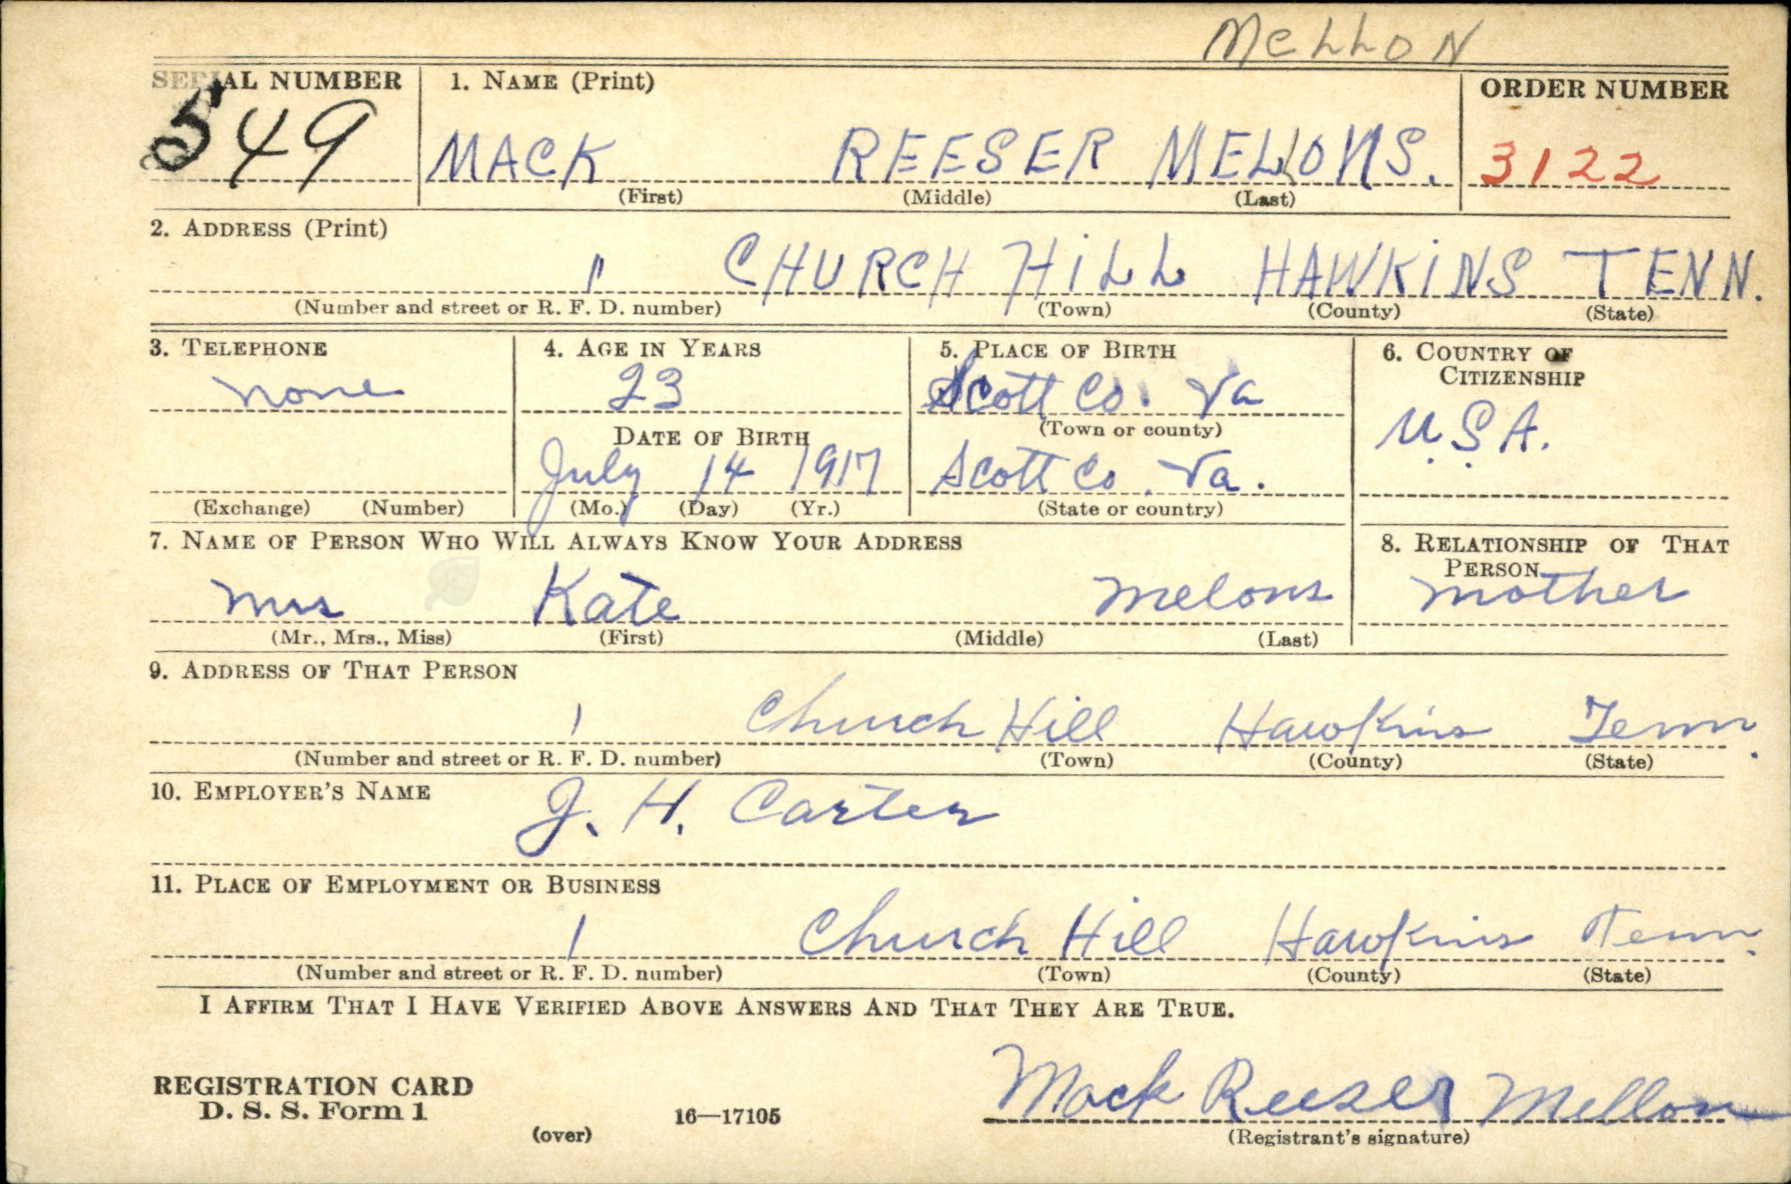 MELLON
SERIAL NUMBER 1. NAME (Print) ORDER NUMBER
549 MACK REESER MELLONS. 3122
(First) (Middle) (Last)
2. ADDRESS (Print)
1 CHURCH HILL HAWKINS TENN.
(Number and street or R. F. D. number) (Town) (County) (State)
3. TELEPHONE 4. AGE IN YEARS 5. PLACE OF BIRTH 6. COUNTRY OF CITIZENSHIP
none 23 Scott Co. Va U.S.A.
DATE OF BIRTH (Town or county)
July 14 1917 Scott Co. Va.
(Exchange) (Number) (Mo.) (Day) (Yr.) (State or country)
7. NAME OF PERSON WHO WILL ALWAYS KNOW YOUR ADDRESS 8. RELATIONSHIP OF THAT PERSON
Mrs Kate Melons Mother
(Mr., Mrs., Miss) (First) (Middle) (Last)
9. ADDRESS OF THAT PERSON
1 Church Hill Hawkins Tenn.
(Number and street or R. F. D. number) (Town) (County) (State)
10. EMPLOYER'S NAME
J. H. Carter
11. PLACE OF EMPLOYMENT OR BUSINESS
1 Church Hill Hawkins Tenn.
(Number and street or R. F. D. number) (Town) (County) (State)
I AFFIRM THAT I HAVE VERIFIED ABOVE ANSWERS AND THAT THEY ARE TRUE.
REGISTRATION CARD
D. S. S. Form 1 16—17105 Mack Reeser Mellon
(over) (Registrant's signature)